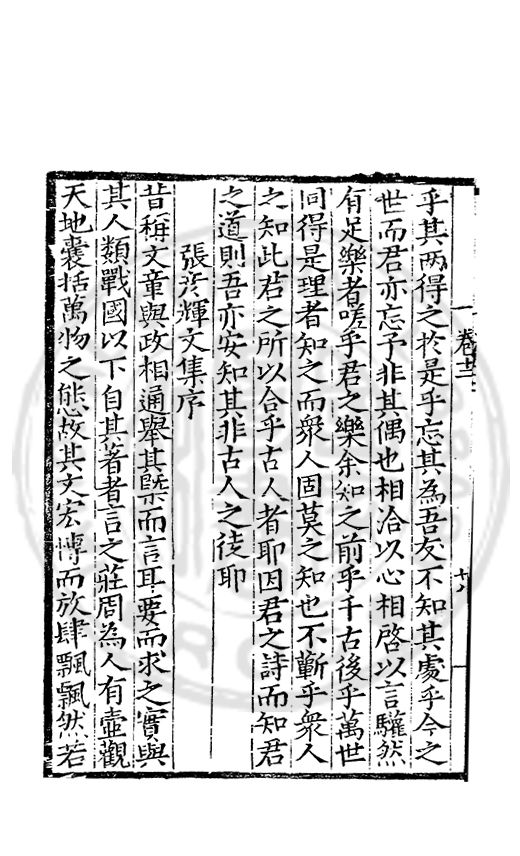 卷十二
十八
乎其兩得之於是乎忘其為吾友不知其處乎今之
世而君亦忘予非其偶也相洽以心相啓以言驩然
有足樂者嗟乎君之樂余知之前乎千古後乎萬世
同得是理者知之而衆人固莫之知也不蘄乎衆人
之知此君之所以合乎古人者耶因君之詩而知君
之道則吾亦安知其非古人之徒耶
張彥輝文集序
昔稱文章與政相通舉其槩而言耳要而求之實與
其人類戰國以下自其著者言之莊周為人有壺觀
天地囊括萬物之態故其文宏博而放肆飄飄然若